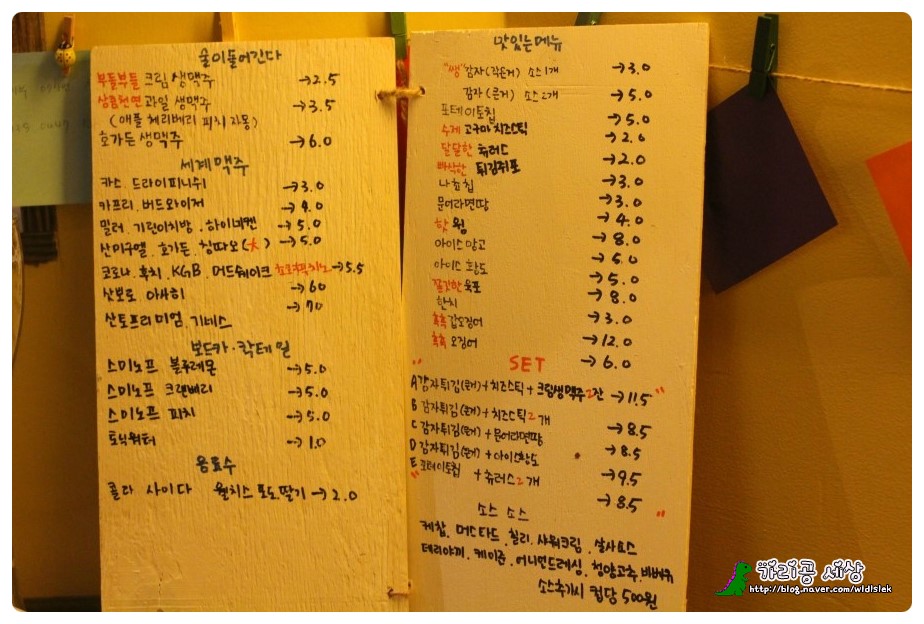 굴이들어간다
부들부들 크림 생맥주 →2.5
상콤천연 과일 생맥주 →3.5
(애플 체리베리 피치 자몽)
호가든 생맥주 →6.0
세계맥주
카스. 드라이피니쉬 →3.0
카프리. 버드와이저 →4.0
밀러. 기린이치방. 하이네켄 →5.0
산미구엘. 호가든. 칭따오(大) →5.0
코로나. 후치. KGB. 머드쉐이크 →5.5
산뽀로. 아사히 →60
산토프리미엄. 기네스 →70
보드카·칵테일
스미노프 블루레몬 →5.0
스미노프 크랜베리 →5.0
스미노프 피치 →5.0
토닉워터 →1.0
음료수
콜라 사이다 웰치스 포도.딸기 →2.0
맛있는메뉴
"쌩"감자(작은거) 소스1개 →3.0
감자(큰거) 소스2개 →5.0
포테이토칩 →5.0
수제 고구마 치즈스틱 →2.0
달달한 츄러스 →2.0
빠삭한 튀김쥐포 →3.0
나쵸칩 →3.0
문어라면땅 →4.0
핫 윙 →8.0
아이스망고 →5.0
아이스 황도 →5.0
쫄깃한 육포 →8.0
한치 →3.0
촉촉 갑오징어 →12.0
촉촉 오징어 →6.0
SET
"A 감자튀김(큰거)+치즈스틱+크림생맥주2잔 →11.5"
B 감자튀김(큰거)+치즈스틱2개 →8.5
C 감자튀김(큰거)+문어라면땅 →8.5
D 감자튀김(큰거)+아이스황도 →9.5
"E 포테이토칩 +츄러스2개 →8.5"
소스 소스
케찹. 머스타드. 칠리. 샤워크림. 살사소스
데리야끼. 케이준. 어니언드레싱. 청양고추. 바베큐
소스추가시 컵당 500원
카리공 세상
http://blog.naver.com/wldlslek